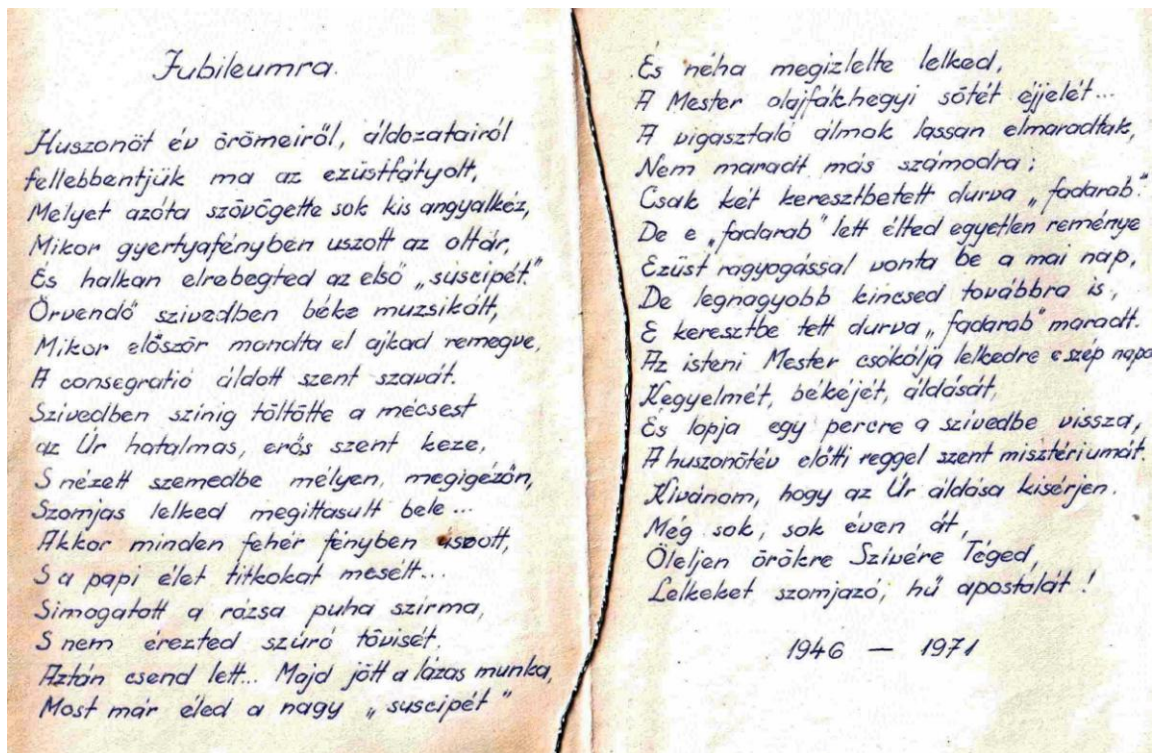 Jubileumra.
Huszonöt év örömeiről, áldozatairól
fellebbentjük ma az ezüstfátyolt,
Melyet azóta szövögette sok kis angyalkéz,
Mikor gyertyafényben uszott az oltár,
És halkan elrebegted az első „suscipét."
Örvendő szivedben béke muzsikált,
Mikor először mondta el ajkad remegve,
A consegratió áldott szent szavát.
Szivedben szinig töltötte a mécsest
az Úr hatalmas, erős szent keze,
S nézett szemedbe mélyen, megigézőn,
Szomjas lelked megittasult bele...
Akkor minden fehér fényben úszott,
S a papi élet titkokat mesélt...
Simogatott a rózsa puha szirma,
S nem érezted szúró tövisét.
Aztán csend lett... Majd jött a lázas munka,
Most már éled a nagy „suscipét"
És néha megizlelte lelked,
A Mester olajfákhegyi sötét éjjelét...
A vigasztaló álmok lassan elmaradtak,
Nem maradt más számodra;
Csak két keresztbetett durva „fadarab."
De e „fadarab" lett élted egyetlen reménye
Ezüst ragyogással vonta be a mai nap,
De legnagyobb kincsed továbbra is,
E keresztbe tett durva „fadarab" maradt.
Az isteni Mester csókolja lelkedre e szép
Kegyelmét, békéjét, áldását,
És lopja egy percre a szivedbe vissza,
A huszonötév előtti reggel szent misztériumát.
Kivánom, hogy az Úr áldása kisérjen.
Még sok, sok éven át,
Öleljen örökre Szivére Téged,
Lelkeket szomjazó, hű apostolát!
1946 — 1971